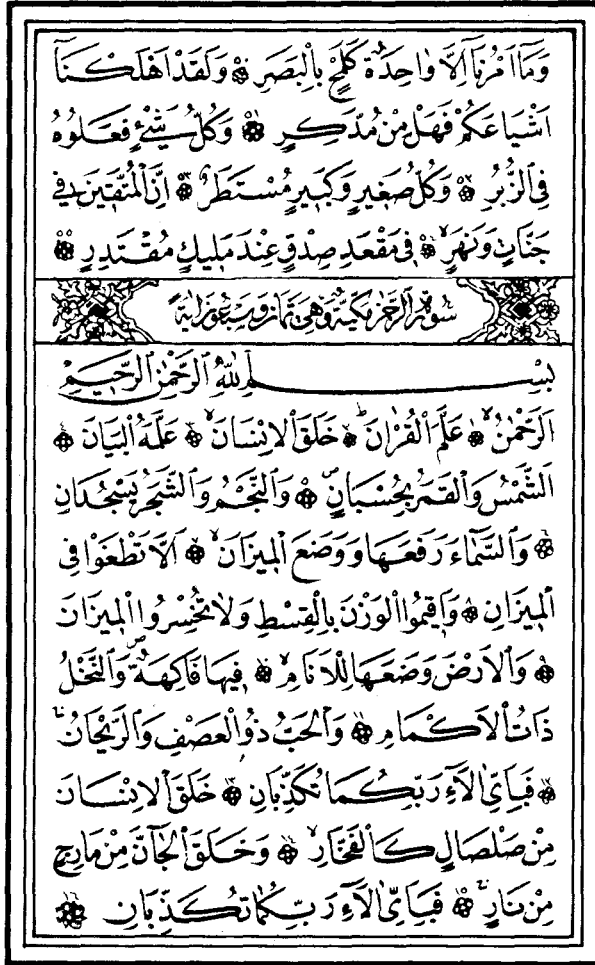 وَمَٓا اَمْرُنَٓا اِلَّا وَاحِدَةٌ كَلَمْحٍ بِالْبَصَرِ ۞ وَلَقَدْ اَهْلَكْنَٓا
اَشْيَاعَكُمْ فَهَلْ مِنْ مُدَّكِرٍ ۞ وَكُلُّ شَيْءٍ فَعَلُوهُ
فِي الزُّبُرِ ۞ وَكُلُّ صَغِيرٍ وَكَبِيرٍ مُسْتَطَرٌ ۞ اِنَّ الْمُتَّقِينَ فِي
جَنَّاتٍ وَنَهَرٍ ۞ فِي مَقْعَدِ صِدْقٍ عِنْدَ مَلِيكٍ مُقْتَدِرٍ ۞
سُورَةُ الرَّحْمٰنِ مَكِّيَّةٌ وَهِيَ ثَمَانٍ وَسَبْعُونَ اٰيَةً
بِسْمِ اللّٰهِ الرَّحْمٰنِ الرَّحِيمِ
اَلرَّحْمٰنُ ۞ عَلَّمَ الْقُرْاٰنَ ۞ خَلَقَ الْاِنْسَانَ ۞ عَلَّمَهُ الْبَيَانَ ۞
اَلشَّمْسُ وَالْقَمَرُ بِحُسْبَانٍ ۞ وَالنَّجْمُ وَالشَّجَرُ يَسْجُدَانِ
۞ وَالسَّمَٓاءَ رَفَعَهَا وَوَضَعَ الْمِيزَانَ ۞ اَلَّا تَطْغَوْا فِي
الْمِيزَانِ ۞ وَاَقِيمُوا الْوَزْنَ بِالْقِسْطِ وَلَا تُخْسِرُوا الْمِيزَانَ
۞ وَالْاَرْضَ وَضَعَهَا لِلْاَنَامِ ۞ فِيهَا فَاكِهَةٌ وَالنَّخْلُ
ذَاتُ الْاَكْمَامِ ۞ وَالْحَبُّ ذُو الْعَصْفِ وَالرَّيْحَانُ
۞ فَبِاَيِّ اٰلَٓاءِ رَبِّكُمَا تُكَذِّبَانِ ۞ خَلَقَ الْاِنْسَانَ
مِنْ صَلْصَالٍ كَالْفَخَّارِ ۞ وَخَلَقَ الْجَٓانَّ مِنْ مَارِجٍ
مِنْ نَارٍ ۞ فَبِاَيِّ اٰلَٓاءِ رَبِّكُمَا تُكَذِّبَانِ ۞